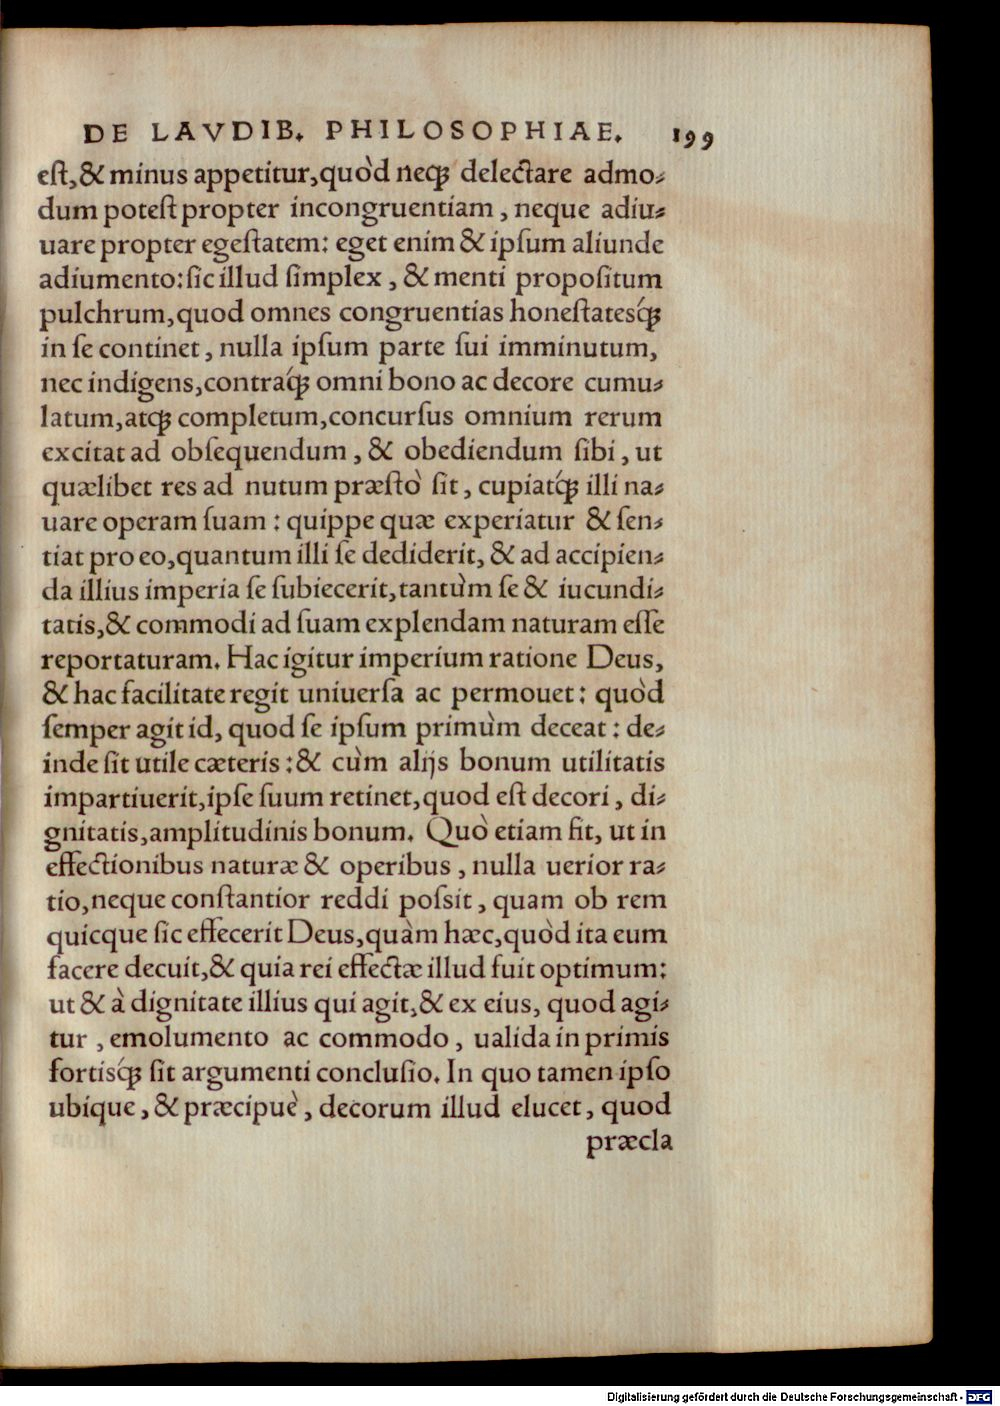 DE LAVDIB. PHILOSOPHIAE. 199
eſt, & minus appetitur, quòd neqꝫ delectare admo-
dum poteſt propter incongruentiam, neque adiu-
uare propter egeſtatem: eget enim & ipſum aliunde
adiumento: ſic illud ſimplex, & menti propoſitum
pulchrum, quod omnes congruentias honeſtatesq́ꝫ
in ſe continet, nulla ipſum parte ſui imminutum,
nec indigens, contraq́ꝫ omni bono ac decore cumu-
latum, atqꝫ completum, concurſus omnium rerum
excitat ad obſequendum, & obediendum ſibi, ut
quælibet res ad nutum præſtò ſit, cupiatq́ꝫ illi na-
uare operam ſuam: quippe quæ experiatur & ſen-
tiat pro eo, quantum illi ſe dediderit, & ad accipien-
da illius imperia ſe ſubiecerit, tantùm ſe & iucundi-
tatis, & commodi ad ſuam explendam naturam eſſe
reportaturam. Hac igitur imperium ratione Deus,
& hac facilitate regit uniuerſa ac permouet: quòd
ſemper agit id, quod ſe ipſum primùm deceat: de-
inde ſit utile cæteris: & cùm alijs bonum utilitatis
impartiuerit, ipſe ſuum retinet, quod eſt decori, di-
gnitatis, amplitudinis bonum. Quò etiam fit, ut in
effectionibus naturæ & operibus, nulla uerior ra-
tio, neque conſtantior reddi poſsit, quam ob rem
quicque ſic effecerit Deus, quàm hæc, quòd ita eum
facere decuit, & quia rei effectæ illud fuit optimum:
ut & à dignitate illius qui agit, & ex eius, quod agi-
tur, emolumento ac commodo, ualida in primis
fortisq́ꝫ ſit argumenti concluſio. In quo tamen ipſo
ubique, & præcipuè, decorum illud elucet, quod
præcla
Digitalisierung gefördert durch die Deutsche Forschungsgemeinschaft - DFG